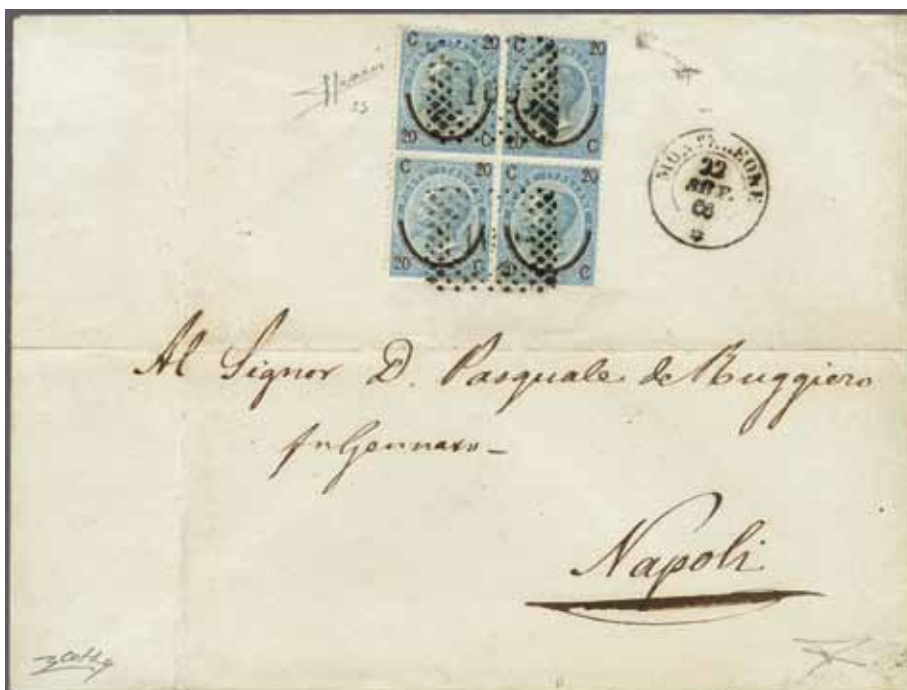 C 20 C 20
20 C 20 C
C 20 C 20
20 C 20 C
MONTELEONE
22
66
Al Signor D. Pasquale de Ruggiero
fu Gennaro
Napoli